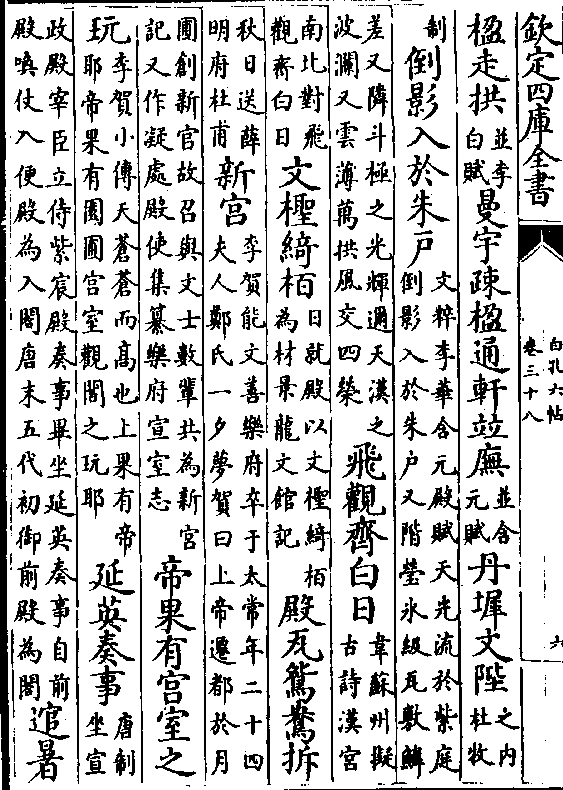 欽定四庫全書
白孔六帖
卷三十八
六
楹走拱並李白賦曼宇疎楹通軒竝廡並含元賦丹墀文陛之内杜牧
制倒影入於朱戸文粹李華含元殿賦天光流於紫庭倒影入於朱戸又階瑩氷級瓦敷鱗
差又隣斗極之光輝邇天漢之波瀾又雲薄萬拱風交四榮飛觀齊白日韋蘇州擬古詩漢宮
南北對飛觀齊白日文檉綺栢日就殿以文檉綺栢為材景龍文館記殿瓦鴛鴦拆
秋日送薛明府杜甫新宫李賀能文善樂府卒于太常年二十四夫人鄭氏一夕夢賀曰上帝遷都於月
圃創新宫故召與文士數輩共為新宫記又作凝處殿使集纂樂府宣室志帝果有宫室之
玩李賀小傳天蒼蒼而高也上果有帝耶帝果有園圃宫室觀閣之玩耶延英奏事唐制坐宣
政殿宰臣立侍紫宸殿奏事畢坐延英奏事自前殿喚仗入便殿為入閤唐末五代初御前殿為閤逭暑